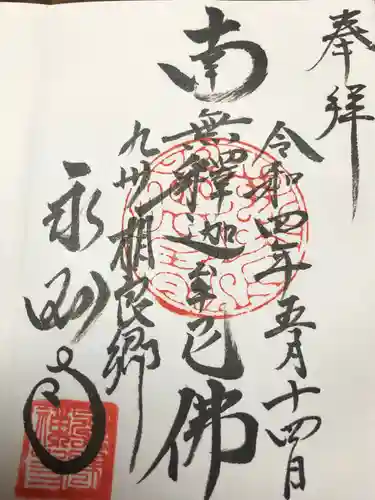 奉拝
令和四年五月十四日
南無釋迦牟尼佛
九州相良郷
永国寺